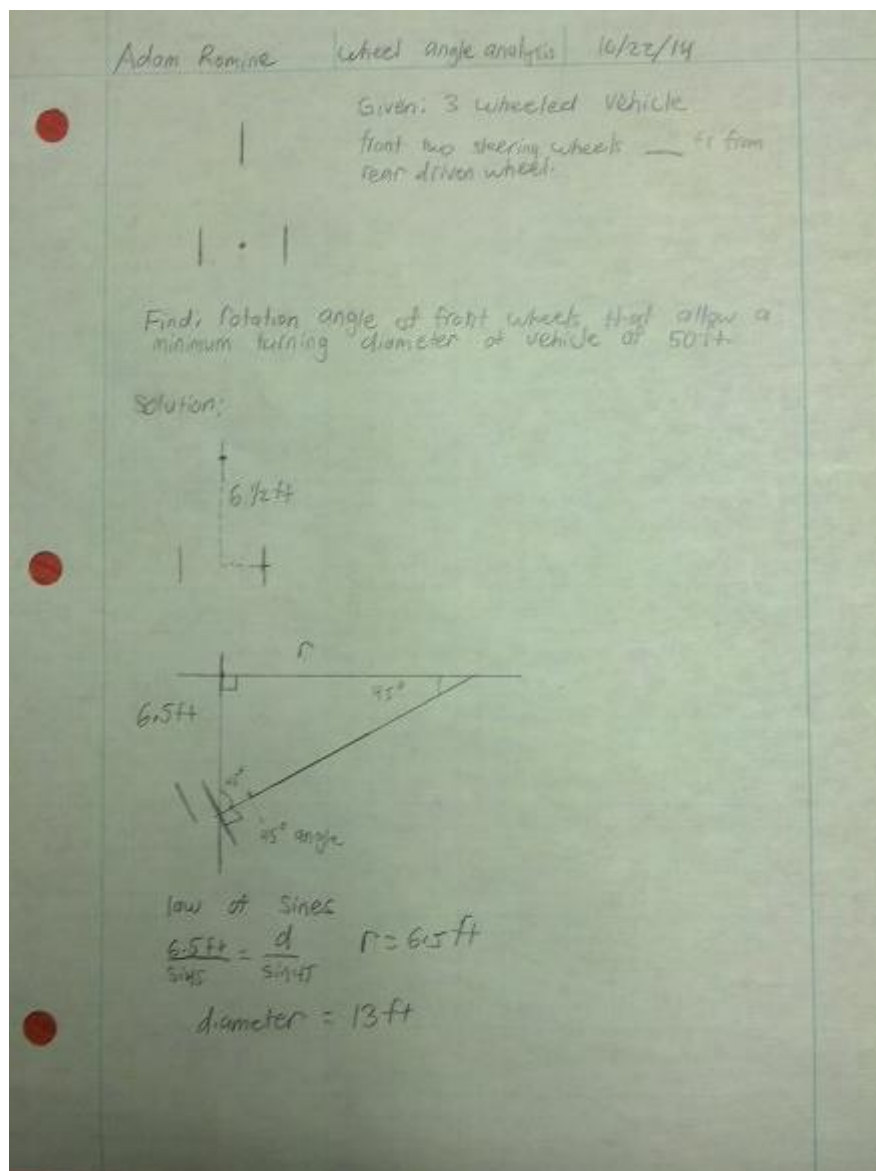 Adam Romine wheel angle analysis 10/22/14
Given: 3 wheeled vehicle
front two steering wheels __ ft from
rear driven wheel.
Find: rotation angle of front wheels that allow a
minimum turning diameter of vehicle of 50 ft.
Solution:
6 1/2 ft
r
45°
6.5ft
45°
45° angle
law of sines
6.5ft/sin45 = d/sin45 r=6.5 ft
diameter = 13 ft